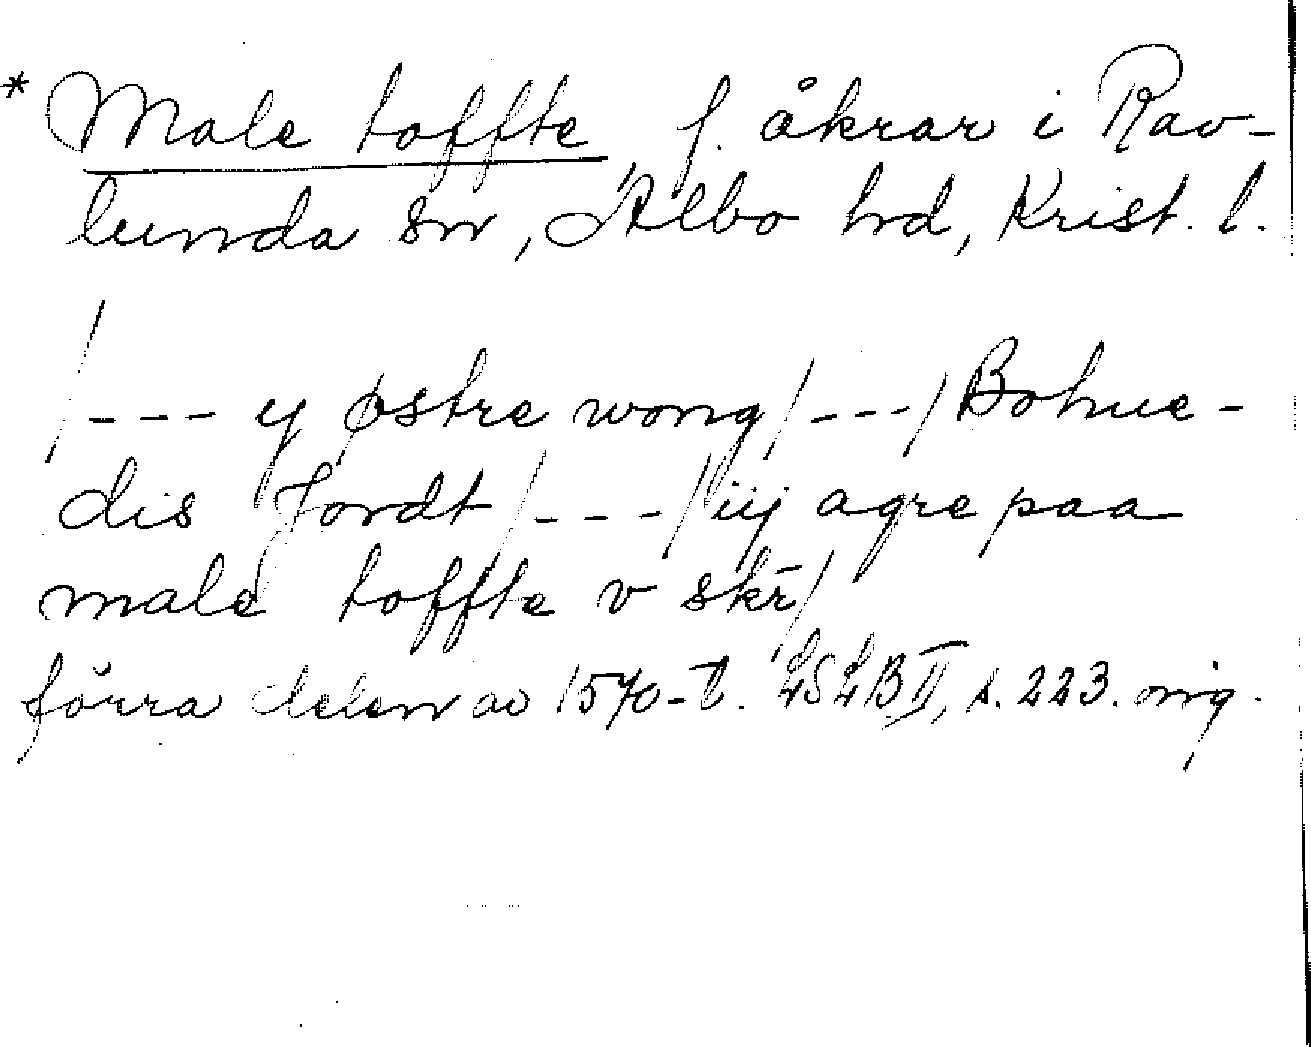 * Male toffte, f. åkrar i Rav-
lunda sn, Albo hd, Krist. l.
/--- y østre wong/---/Bohne-
dis Jordt/---/iij agre paa
male toffte v skr̄/
förra delen av 1570-t. LSLB II, s. 223. orig.